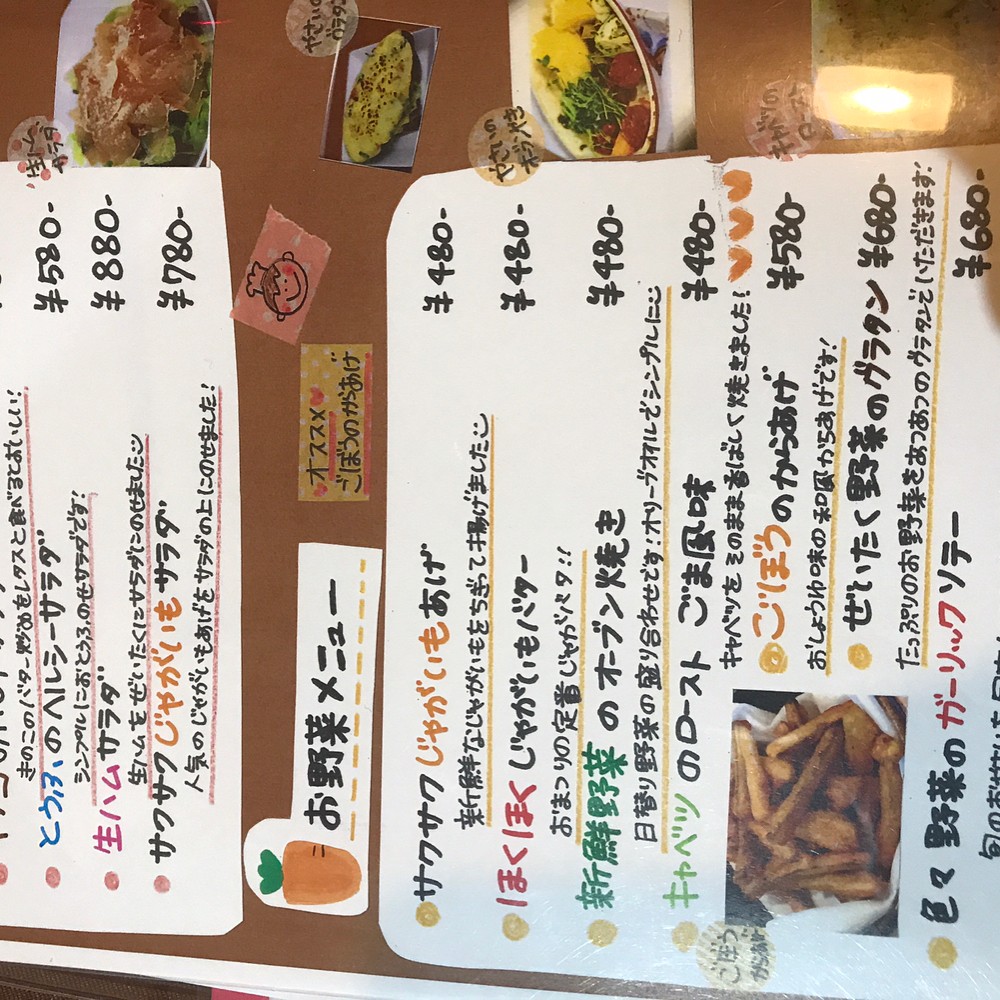 きのこのバター炒めをレタスと食べるとおいしい!
とうふのヘルシーサラダ ¥580-
シンプルにおとうふのせサラダです!
生ハムサラダ ¥880-
生ハムをぜいたくにサラダにのせました
サクサクじゃがいもサラダ ¥780-
人気のじゃがいもあげをサラダの上にのせました!
生ハムサラダ
やさいのグラタン
オススメ
ごぼうのからあげ
お野菜メニュー
サクサクじゃがいもあげ ¥480-
新鮮なじゃがいもをちぎって揚げました
ほくほくじゃがいもバター ¥480-
おまつりの定番じゃがバタ!!
新鮮野菜のオーブン焼き ¥480-
日替り野菜の盛り合わせです!オリーブオイルでシンプルに
キャベツのロースト ごま風味 ¥480-
キャベツをそのまま香ばしく焼きました!
ごぼうのからあげ ¥580-
おしょうゆ味の和風からあげです!
ぜいたく野菜のグラタン ¥680-
たっぷりのお野菜をあつあつのグラタンでいただきます!
色々野菜のガーリックソテー ¥680-
やさいのオーブンやき
キャベツのロースト
ごぼうからあげ